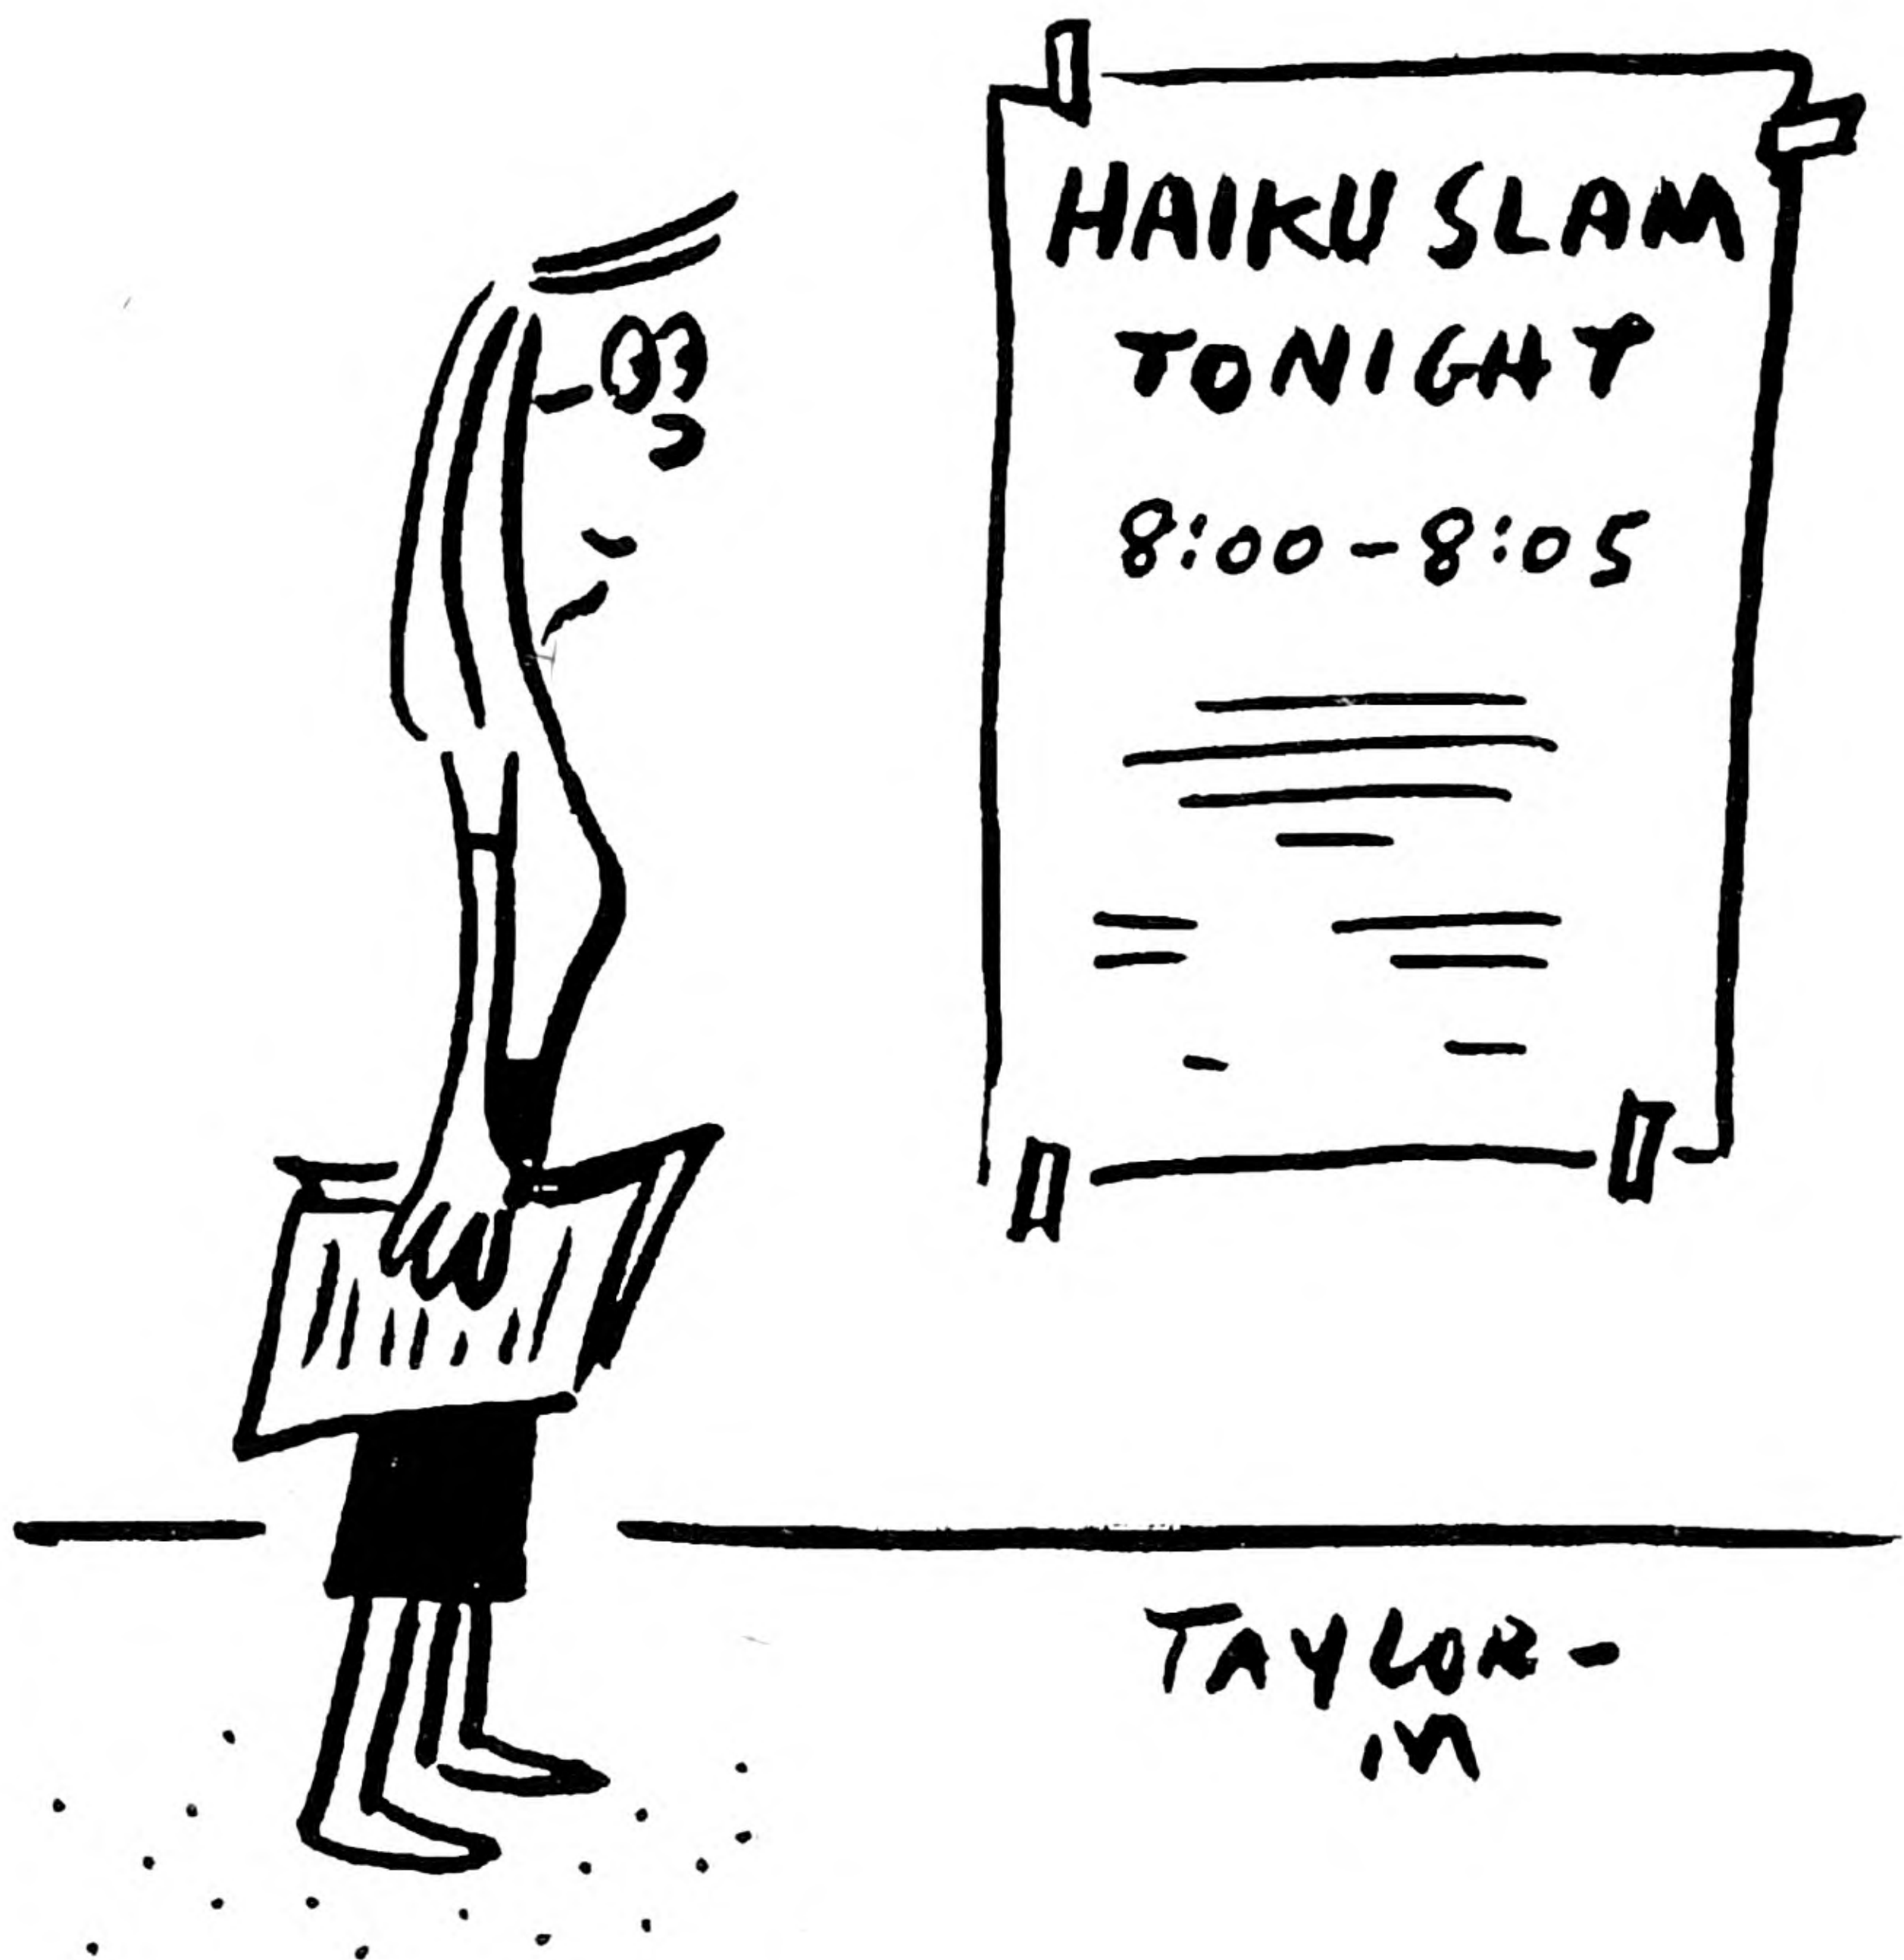 HAIKU SLAM
TONIGHT
8:00-8:05
TAYLOR-